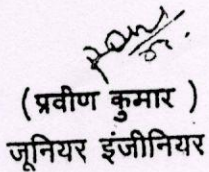 (प्रवीण कुमार )
जूनियर इंजीनियर